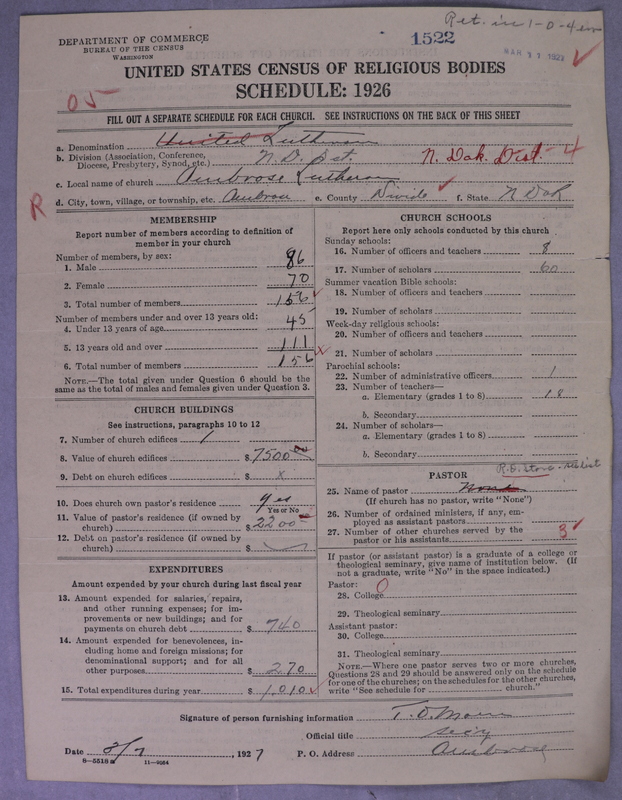 Ret. in 1-0-4
DEPARTMENT OF COMMERCE
BUREAU OF THE CENSUS
WASHINGTON
1522
MAR 11 1927
UNITED STATES CENSUS OF RELIGIOUS BODIES
SCHEDULE: 1926
05
FILL OUT A SEPARATE SCHEDULE FOR EACH CHURCH. SEE INSTRUCTIONS ON THE BACK OF THIS SHEET
a. Denomination United Lutheran
b. Division (Association, Conference, Diocese, Presbytery, Synod, etc.) N.D. Dst. N. Dak. Dist. 4
c. Local name of church Ambrose Lutheran
R
d. City, town, village, or township, etc. Ambrose e. County Divide f. State N Dak
MEMBERSHIP
Report number of members according to definition of
member in your church
Number of members, by sex:
1. Male 86
2. Female 70
3. Total number of members 156
Number of members under and over 13 years old:
4. Under 13 years of age 45
5. 13 years old and over 111
6. Total number of members 156
NOTE.—The total given under Question 6 should be the
same as the total of males and females given under Question 3.
CHURCH BUILDINGS
See instructions, paragraphs 10 to 12
7. Number of church edifices 1
8. Value of church edifices $7500
9. Debt on church edifices $ x
10. Does church own pastor's residence yes
Yes or No
11. Value of pastor's residence (if owned by
church) $2200
12. Debt on pastor's residence (if owned by
church) $
EXPENDITURES
Amount expended by your church during last fiscal year
13. Amount expended for salaries, repairs,
and other running expenses; for im-
provements or new buildings; and for
payments on church debt $ 740
14. Amount expended for benevolences, in-
cluding home and foreign missions; for
denominational support; and for all
other purposes $ 270
15. Total expenditures during year $ 1,010
CHURCH SCHOOLS
Report here only schools conducted by this church
Sunday schools:
16. Number of officers and teachers 8
17. Number of scholars 60
Summer vacation Bible schools:
18. Number of officers and teachers
19. Number of scholars
Week-day religious schools:
20. Number of officers and teachers
21. Number of scholars
Parochial schools:
22. Number of administrative officers 1
23. Number of teachers—
a. Elementary (grades 1 to 8) 18
b. Secondary
24. Number of scholars—
a. Elementary (grades 1 to 8)
b. Secondary
PASTOR
25. Name of pastor None
(If church has no pastor, write "None")
26. Number of ordained ministers, if any, em-
ployed as assistant pastors
27. Number of other churches served by the
pastor or his assistants 3
If pastor (or assistant pastor) is a graduate of a college or
theological seminary, give name of institution below. (If
not a graduate, write "No" in the space indicated.)
Pastor: 0
28. College
29. Theological seminary
Assistant pastor:
30. College
31. Theological seminary
NOTE.—Where one pastor serves two or more churches,
Questions 28 and 29 should be answered only on the schedule
for one of the churches; on the schedules for the other churches,
write "See schedule for church."
Signature of person furnishing information T. O.
Official title secy
Date 3/7, 1927 P. O. Address Ambrose
8—5518a 11—9054